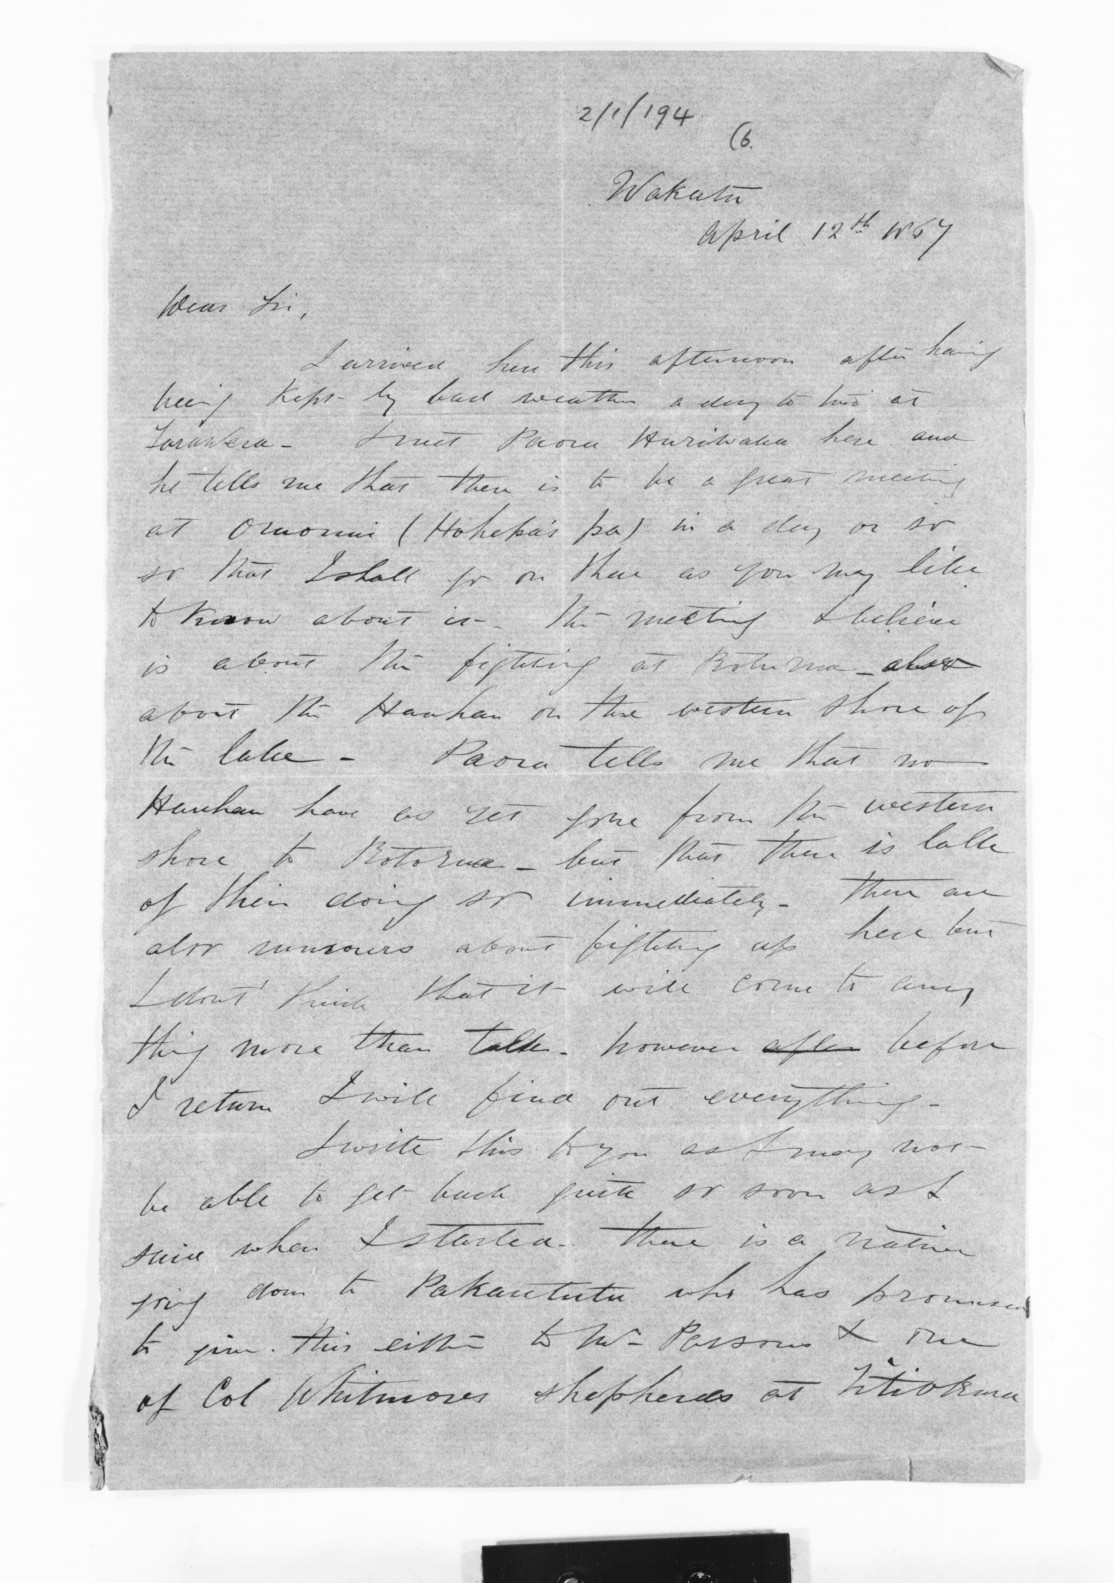 2/1/194
(6.
Wakatu
April 12th 1867
Dear Sir,
I arrived here this afternoon after having
being kept by bad weather a day to two at
Tarawera - I met Paora Huriwaka here and
he tells me that there is to be a great meeting
at Omomui (Hohepa's pa) in a day or so
so that I shall go on there as you may like
to know about it - The meeting I believe
is about the fighting at Rotorua - also
about the Hauhau on the western shore of
the lake - Paora tells me that no
Hauhau have as yet gone from the western
shore to Rotorua - but that there is talk
of their doing so immediately - There are
also rumours about fighting up here but
I dont' think that it will come to any
thing more than talk - however after before
I return I will find out everything -
I write this to you as I may not
be able to get back quite so soon as I
said when I started - There is a native
going down to Pakaututu who has promised
to give this either to Mr Parsons & one
of Col Whitmores shepherds at Titiokura